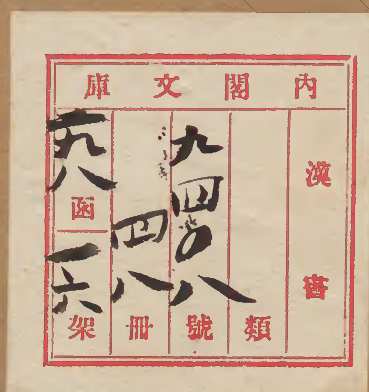 內閣文庫
漢書
類
九四〇八號
四八冊
函
一六架